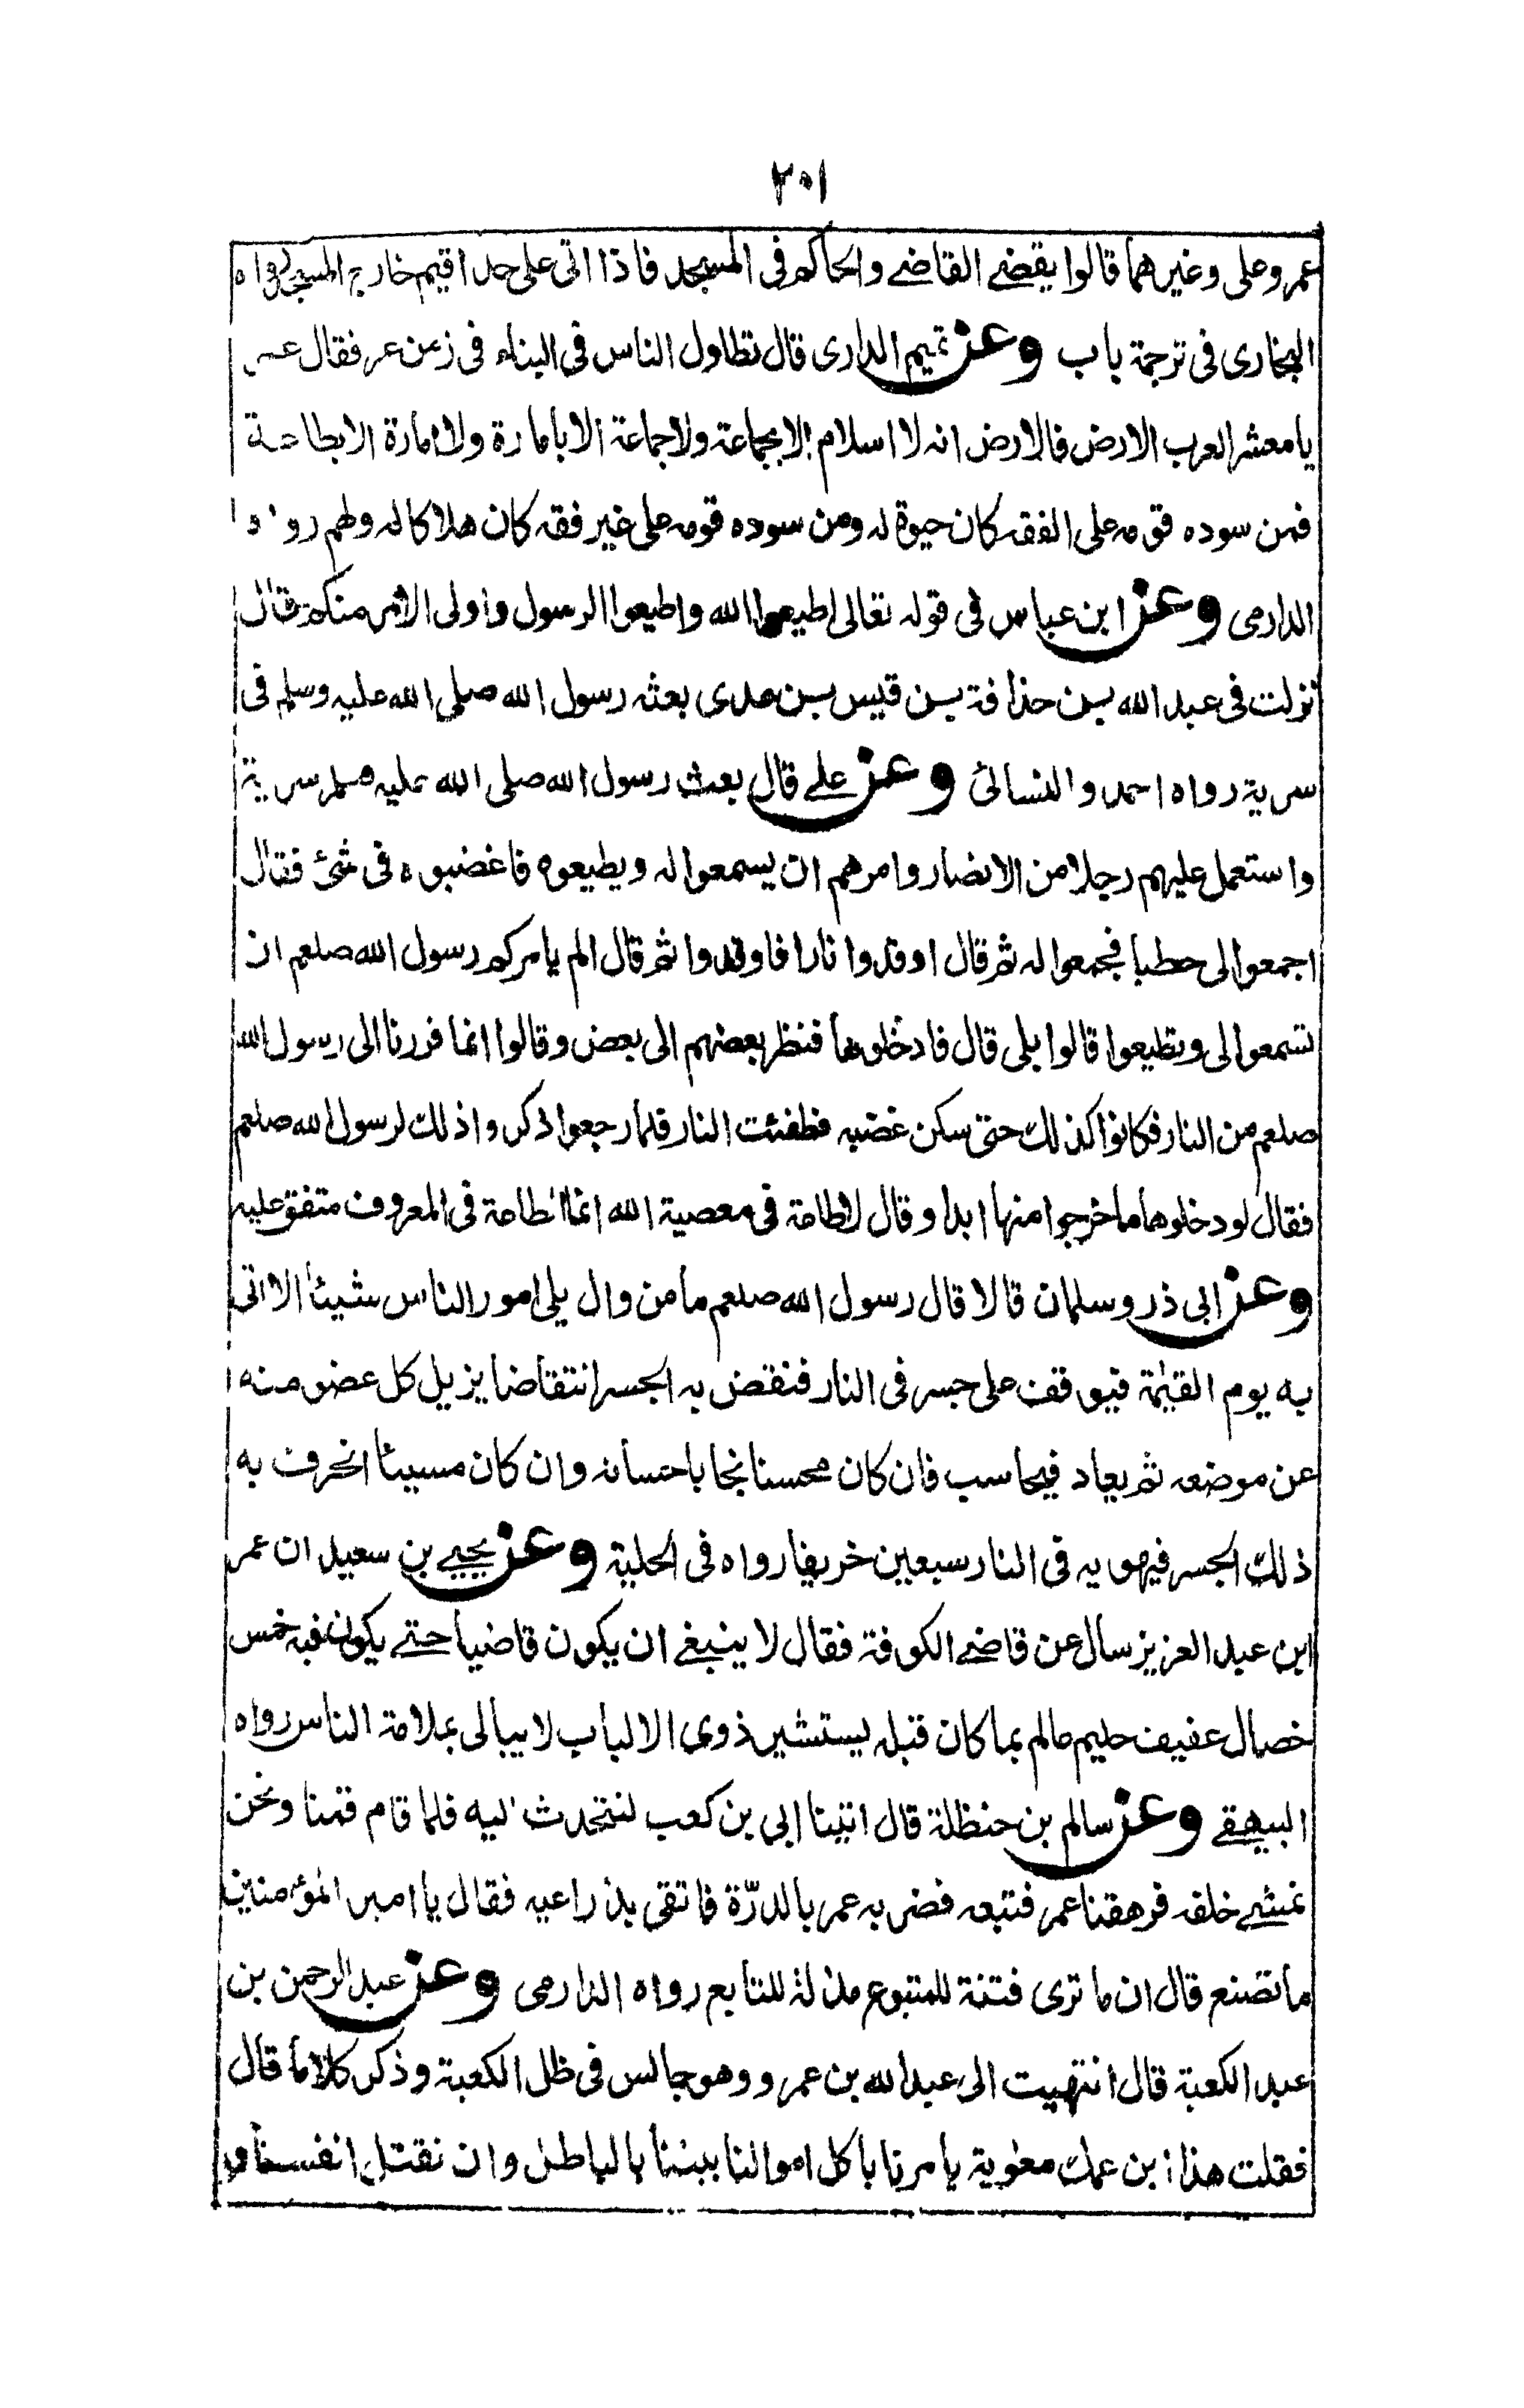 ٢٠١
عمر وعلى وغيرهما قالوا يقضے القاضے والحاكم فى المسجد فاذا اتى على حد اقيم خارج المسجد رواه
البخارى فى ترجمة باب وعن تميم الدارى قال تطاول الناس فى البناء فى زمن عمر فقال عمر
يا معشر العرب الارض فالارض انه لا اسلام الا بجماعة ولا جماعة الا بامارة ولا امارة الا بطاعة
فمن سوده قومه على الفقه كان حيوة له ومن سوده قومه على غير فقه كان هلاكا له ولهم رواه
الدارمى وعن ابن عباس فى قوله تعالى اطيعوا الله واطيعوا الرسول واولى الامر منكم قال
نزلت فى عبد الله بن حذافة بن قيس بن عدى بعثه رسول الله صلى الله عليه وسلم فى
سرية رواه احمد والنسائى وعن علے قال بعث رسول الله صلى الله عليه وسلم سرية
واستعمل عليهم رجلا من الانصار وامرهم ان يسمعوا له ويطيعوه فاغضبوه فى شئ فقال
اجمعوا لى حطبا فجمعوا له ثم قال اوقدوا نارا فاوقدوا ثم قال الم يامركم رسول الله صلعم ان
تسمعوا لى وتطيعوا قالوا بلى قال فادخلوها فنظر بعضهم الى بعض وقالوا انما فررنا الى رسول الله
صلعم من النار فكانوا كذلك حتى سكن غضبه فطفئت النار فلما رجعوا ذكروا ذلك لرسول الله صلعم
فقال لو دخلوها ما خرجوا منها ابدا وقال لا طاعة فى معصية الله انما الطاعة فى المعروف متفق عليه
وعن ابى ذر وسلمان قالا قال رسول الله صلعم ما من وال يلى امور الناس شيئا الا اتى
به يوم القيٰمة فيوقف على جسر فى النار فنقض به الجسر انتقاضا يزيل كل عضو منه
عن موضعه ثم يعاد فيحاسب فان كان محسنا نجا باحسانه وان كان مسيئا انحرف به
ذلك الجسر فيهوى به فى النار سبعين خريفا رواه فى الحلية وعن يحيے بن سعيد ان عمر
ابن عبد العزيز سال عن قاضے الكوفة فقال لا ينبغے ان يكون قاضيا حتے يكون فيه خمس
خصال عفيف حليم عالم بما كان قبله يستشير ذوى الالباب لا يبالى بملامة الناس رواه
البيهقے وعن سالم بن حنظلة قال اتينا ابى بن كعب لنتحدث اليه فلما قام قمنا ونحن
نمشے خلفه فرهقنا عمر فتبعه فضربه عمر بالدرّة فاتقى بذراعيه فقال يا امير المؤمنين
ما تصنع قال ان ما ترى فتنة للمتبوع مذلة للتابع رواه الدارمى وعن عبد الرحمن بن
عبد الكعبة قال انتهيت الى عبد الله بن عمرو وهو جالس فى ظل الكعبة وذكر كلاما قال
فقلت هذا ابن عمك معٰوية يامرنا باكل اموالنا بيننا بالباطل وان نقتل انفسنا و